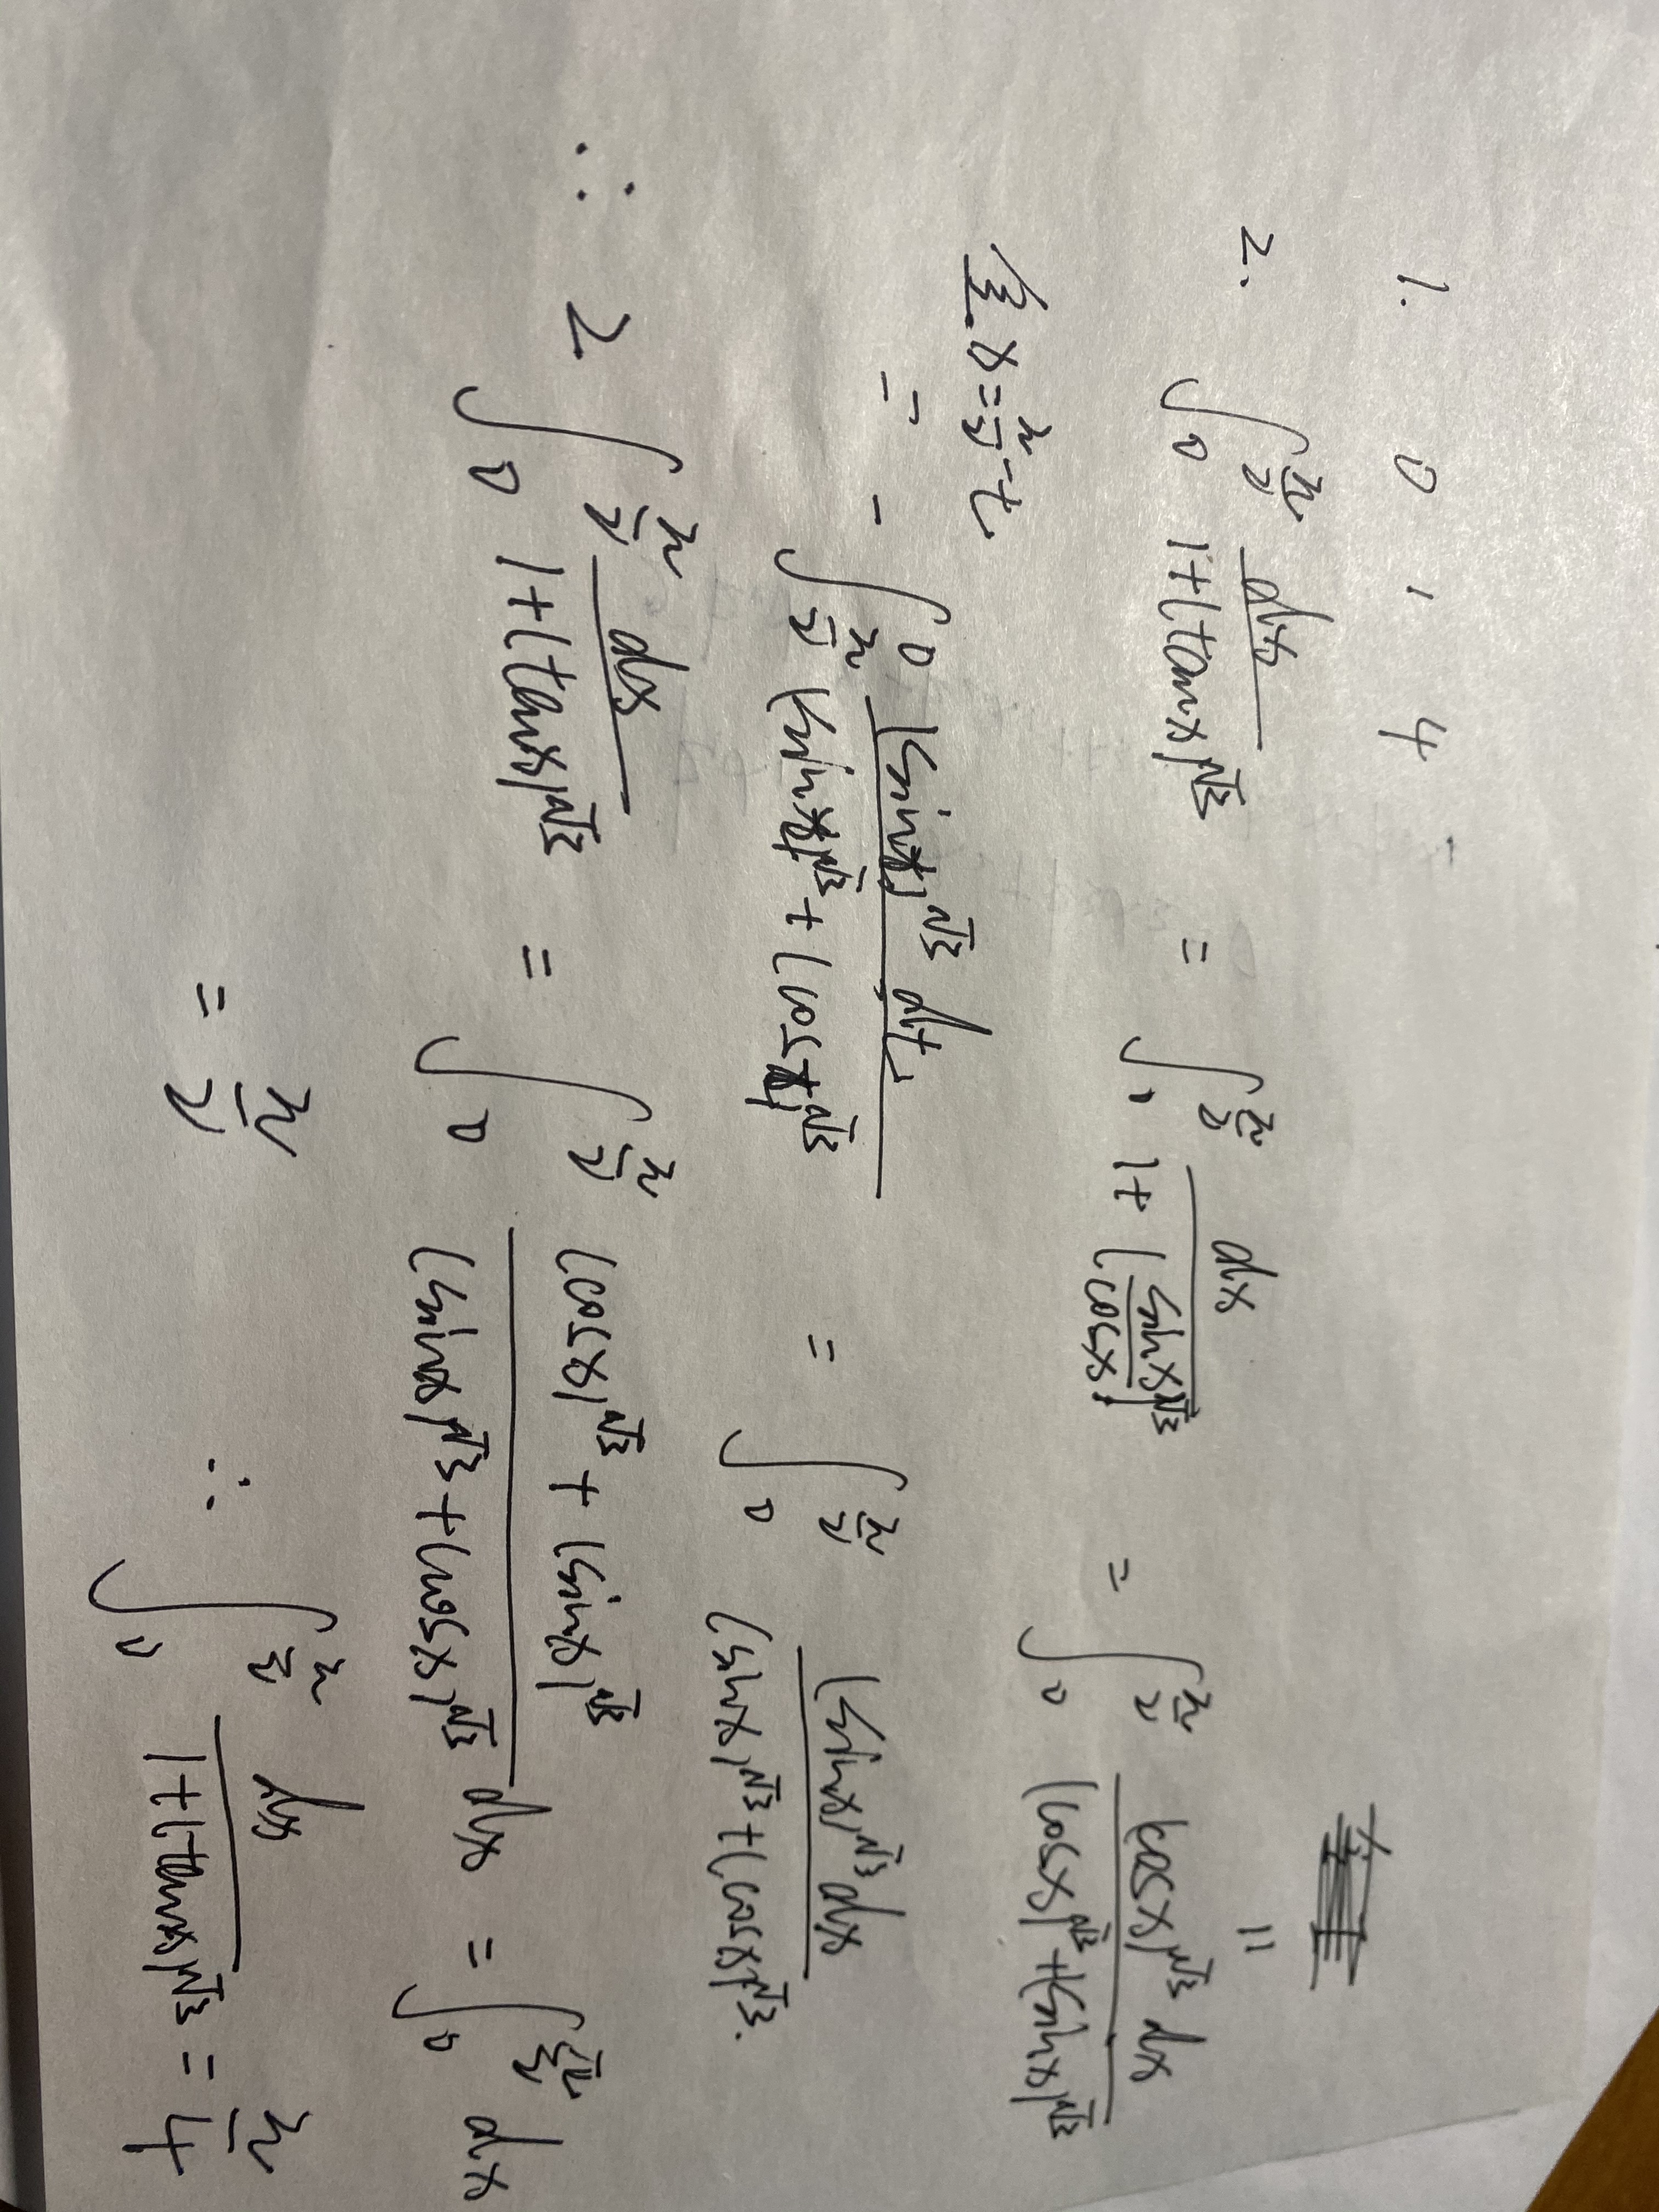 1. 0 , 4
2. ∫_0^{π/2} dx/(1+(tanx)^{√3}) = ∫_0^{π/2} dx/(1+(sinx/cosx)^{√3}) = ∫_0^{π/2} (cosx)^{√3}dx/((cosx)^{√3}+(sinx)^{√3})
=
令x=π/2-t
= -∫_{π/2}^0 (sint)^{√3}dt/((sint)^{√3}+(cost)^{√3}) = ∫_0^{π/2} (sinx)^{√3}dx/((sinx)^{√3}+(cosx)^{√3}).
∴ 2∫_0^{π/2} dx/(1+(tanx)^{√3}) = ∫_0^{π/2} ((cosx)^{√3}+(sinx)^{√3})/((sinx)^{√3}+(cosx)^{√3}) dx = ∫_0^{π/2} dx
= π/2 ∴ ∫_0^{π/2} dx/(1+(tanx)^{√3}) = π/4